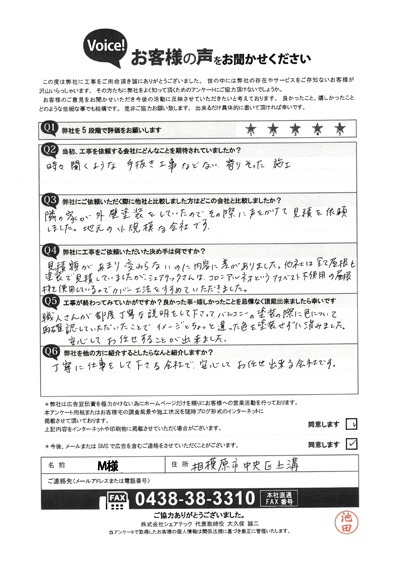 Voice!
お客様の声をお聞かせください
この度は弊社に工事をご用命頂き誠にありがとうございました。世の中には弊社の存在やサービスをご存知ないお客様が
沢山いらっしゃいます。その方たちに弊社をよく知って頂くためのアンケートにご協力頂けないでしょうか。
お客様のご意見をお聞かせいただき今後の活動に反映させていただきたいと考えております。良かったこと、嬉しかったこと
どのような些細な事でも結構です。是非ご協力お願い致します。出来るだけ具体的に書いて頂ければ幸いです。
Q1 弊社を5段階で評価をお願いします ★ ★ ★ ★ ★
Q2 当初、工事を依頼する会社にどんなことを期待されていましたか?
時々聞くような手抜き工事などない、寄りそった施工
Q3 弊社にご依頼いただく際に他社と比較しました方はどこの会社と比較しましたか?
隣の家が外壁塗装をしていたのでその際に声をかけて見積を依頼
しました。地元の小規模な会社です。
Q4 弊社に工事をご依頼いただいた決め手は何ですか?
見積額があまり変わらないのに内容に差がありました。他社は全て屋根も
塗装で見積していましたがシェアテックさんは、コロニアルネオというアスベスト不使用の屋根
材を使用しているのでカバー工法をすすめていただきました。
Q5 工事が終わってみていかがですか?良かった事・嬉しかったことを忌憚なく頂戴出来ましたら幸いです
職人さんが都度丁寧な説明をして下さってバルコニーの塗装の際に色について
再確認していただいたことでイメージとちょっと違った色を塗装せずに済みました。
安心してお任せすることが出来ました。
Q6 弊社を他の方に紹介するとしたらなんと紹介しますか?
丁寧に仕事をして下さる会社で、安心してお任せ出来る会社です。
*弊社は広告宣伝費を極力かけない為にホームページだけを頼りにお客様への営業活動を行っております。
本アンケート用紙またはお客様宅の調査風景や施工状況を随時ブログ形式のインターネットに
掲載させて頂いております。
上記内容をインターネットや印刷物に掲載させていただく場合がございます。 同意します
*今後、メールまたはSMSで広告を含むご連絡をさせていただくことがございます。 同意します
名前 M様 住所 相模原市中央区上溝
ご連絡先(メールアドレスまたは電話番号)
FAX 0438-38-3310 本社直通 FAX番号
ご協力ありがとうございました。
株式会社シェアテック 代表取締役 大久保 誠二
当アンケートで取得したお客様の個人情報は関係法規に基づき厳正に管理いたします。
池田